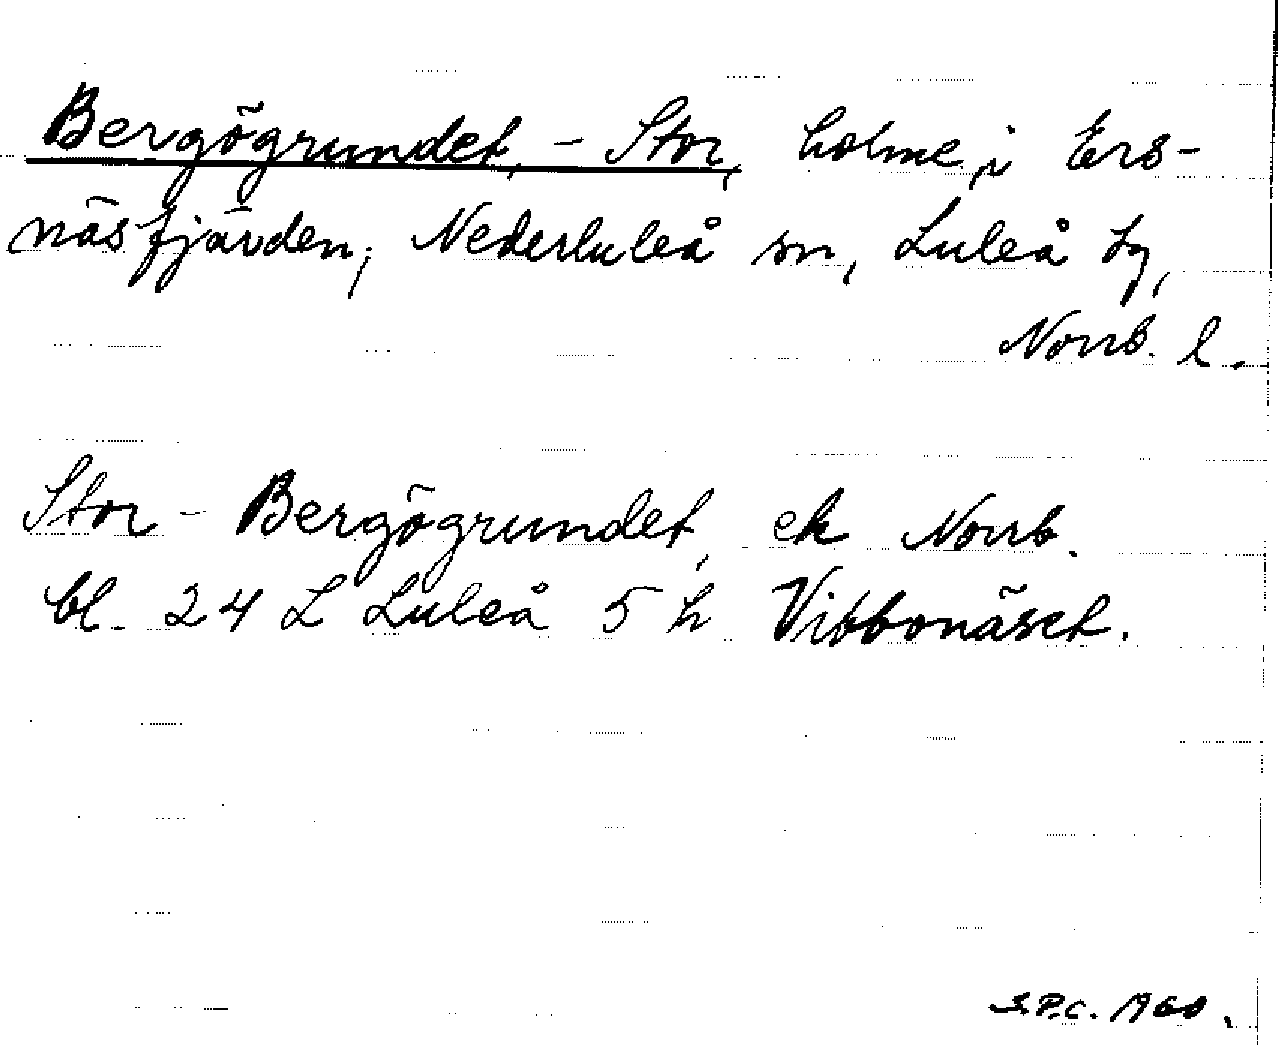 Bergögrundet, - Stor, holme, i Ers-
näsfjärden, Nederluleå sn, Luleå tg,
Norrb. l.
Stor - Bergögrundet, ek Norrb.
bl. 24 L Luleå 5 h Vibbonäset.
S.P.C. 1960.